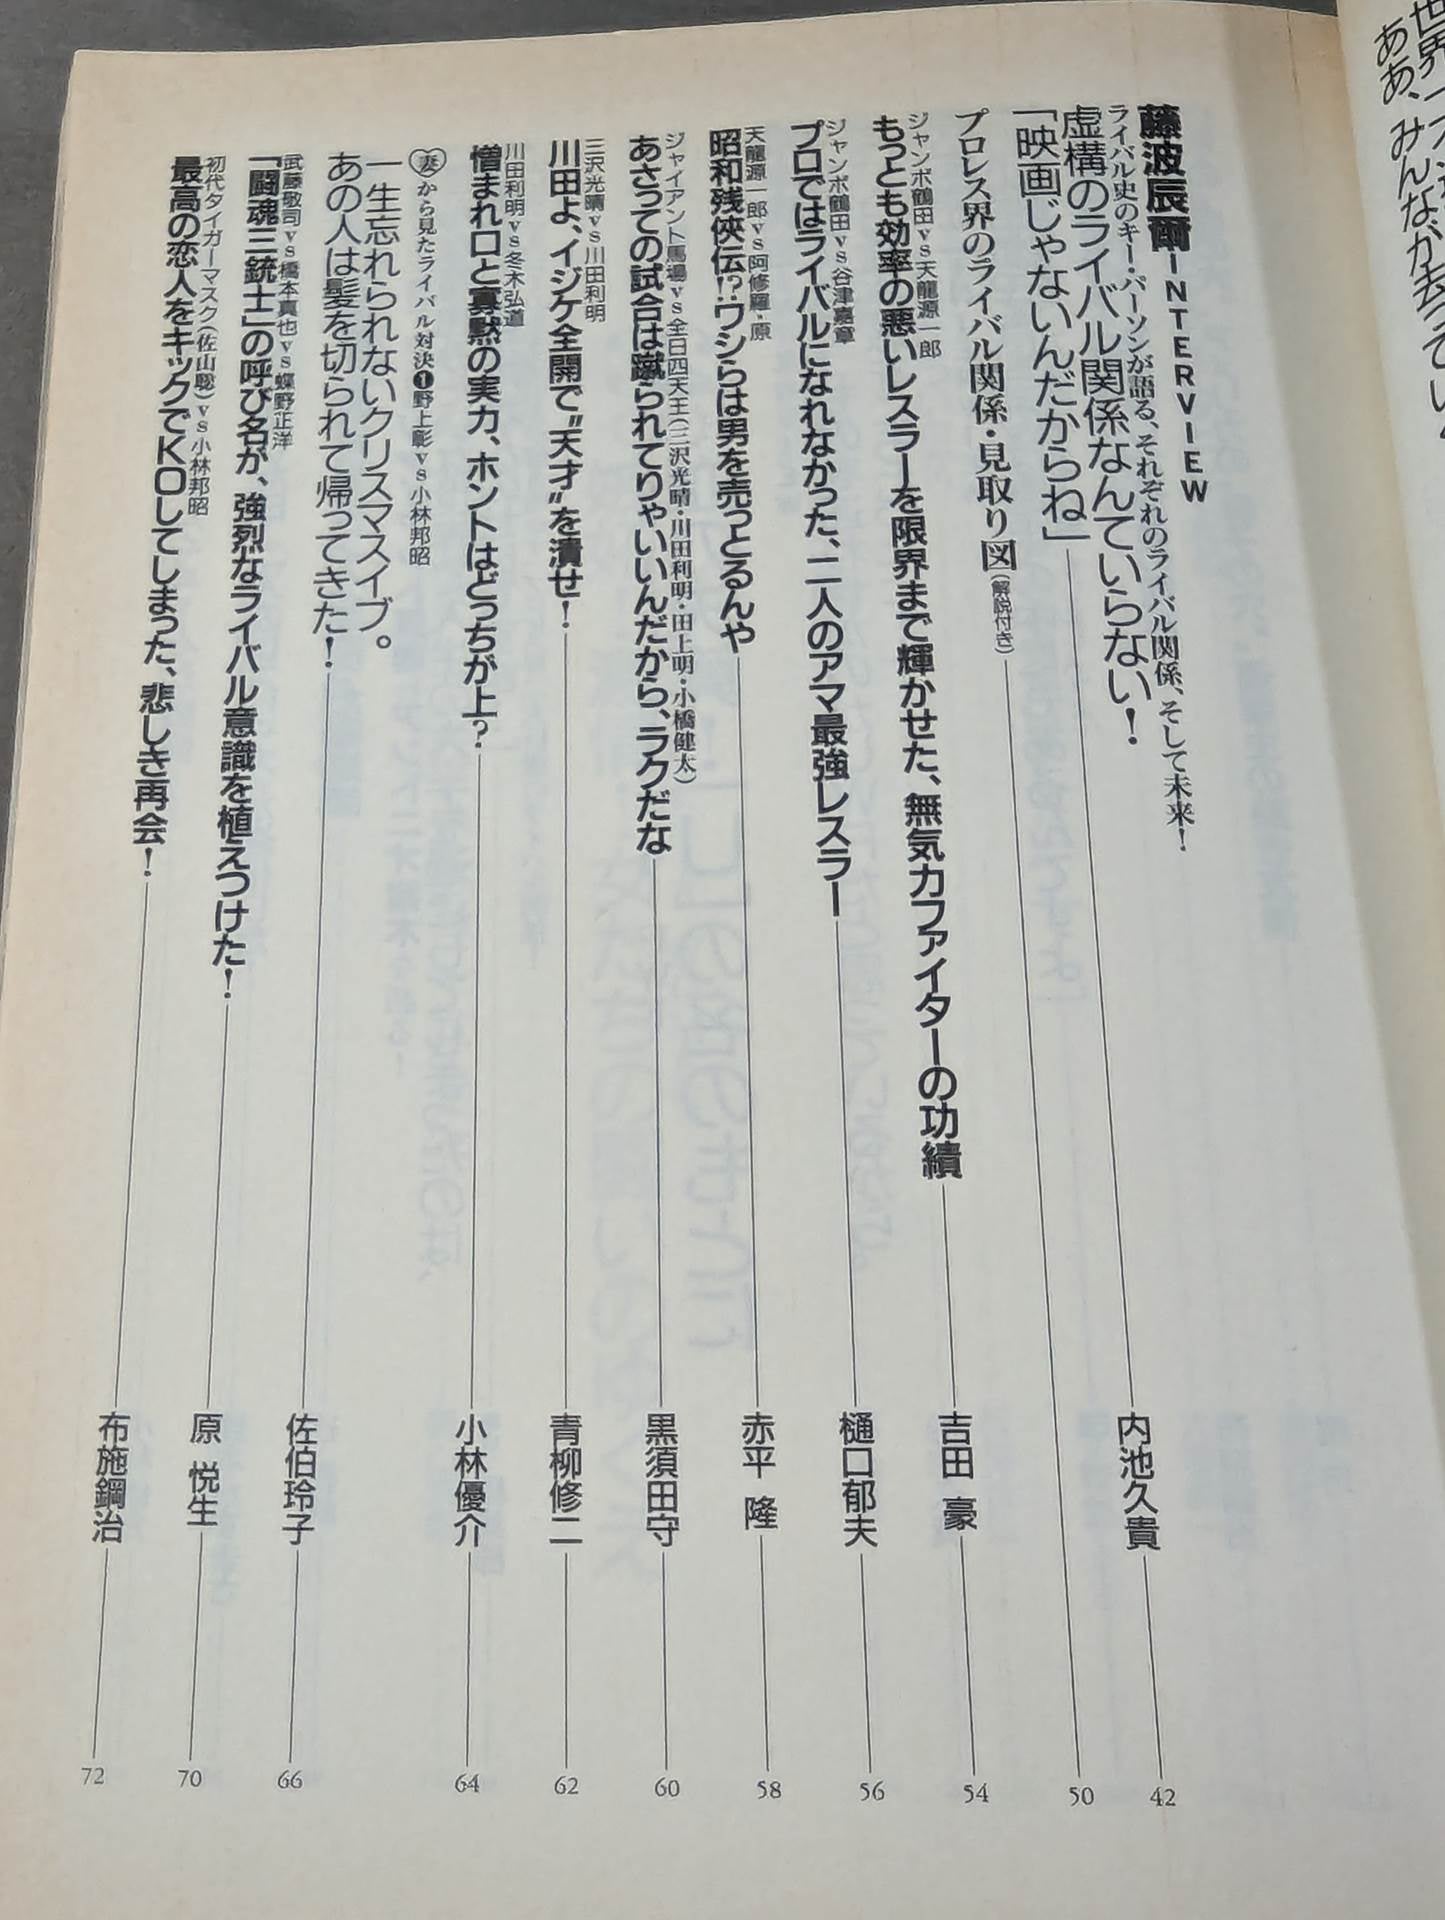 藤波辰爾INTERVIEW
ライバル史のキー・パーソンが語る、それぞれのライバル関係、そして未来！
虚構のライバル関係なんていらない！
「映画じゃないんだからね」
内池久貴
42
プロレス界のライバル関係・見取り図（解説付き）
50
ジャンボ鶴田vs天龍源一郎
もっとも効率の悪いレスラーを限界まで輝かせた、無気力ファイターの功績
吉田 豪
54
ジャンボ鶴田vs谷津嘉章
プロではライバルになれなかった、二人のアマ最強レスラー
樋口郁夫
56
天龍源一郎vs阿修羅・原
昭和残侠伝!?ワシらは男を売っとるんや
赤平 隆
58
ジャイアント馬場vs全日四天王（三沢光晴・川田利明・田上明・小橋健太）
あさっての試合は蹴られてりゃいいんだから、ラクだな
黒須田守
60
三沢光晴vs川田利明
川田よ、イジケ全開で“天才”を潰せ！
青柳修二
62
川田利明vs冬木弘道
憎まれ口と寡黙の実力、ホントはどっちが上？
小林優介
64
妻から見たライバル対決❶野上彰vs小林邦昭
一生忘れられないクリスマスイブ。
あの人は髪を切られて帰ってきた！
佐伯玲子
66
武藤敬司vs橋本真也vs蝶野正洋
「闘魂三銃士」の呼び名が、強烈なライバル意識を植えつけた！
原 悦生
70
初代タイガーマスク（佐山聡）vs小林邦昭
最高の恋人をキックでKOしてしまった、悲しき再会！
布施鋼治
72